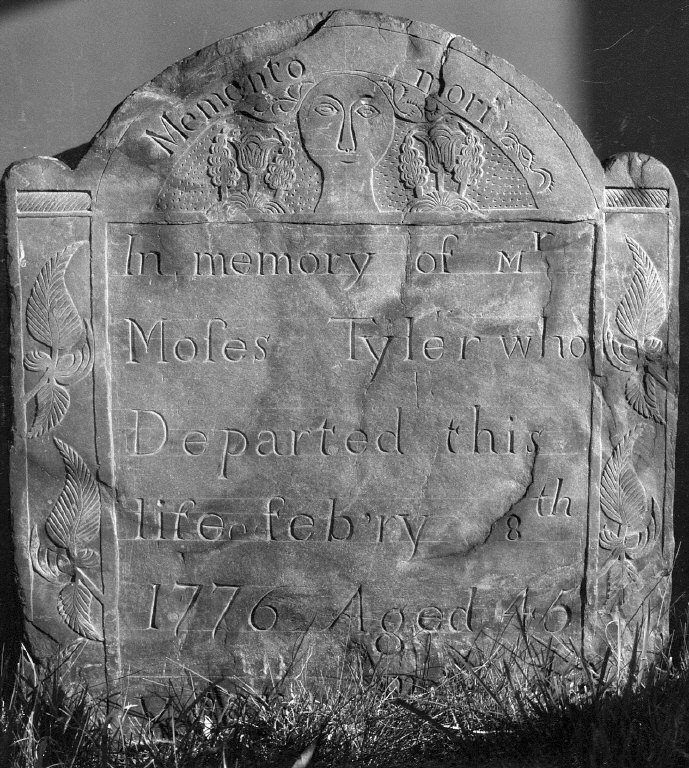 Memento mori
In memory of Mr
Moſes Tyler who
Departed this
life feb'ry 8th
1776 Aged 45